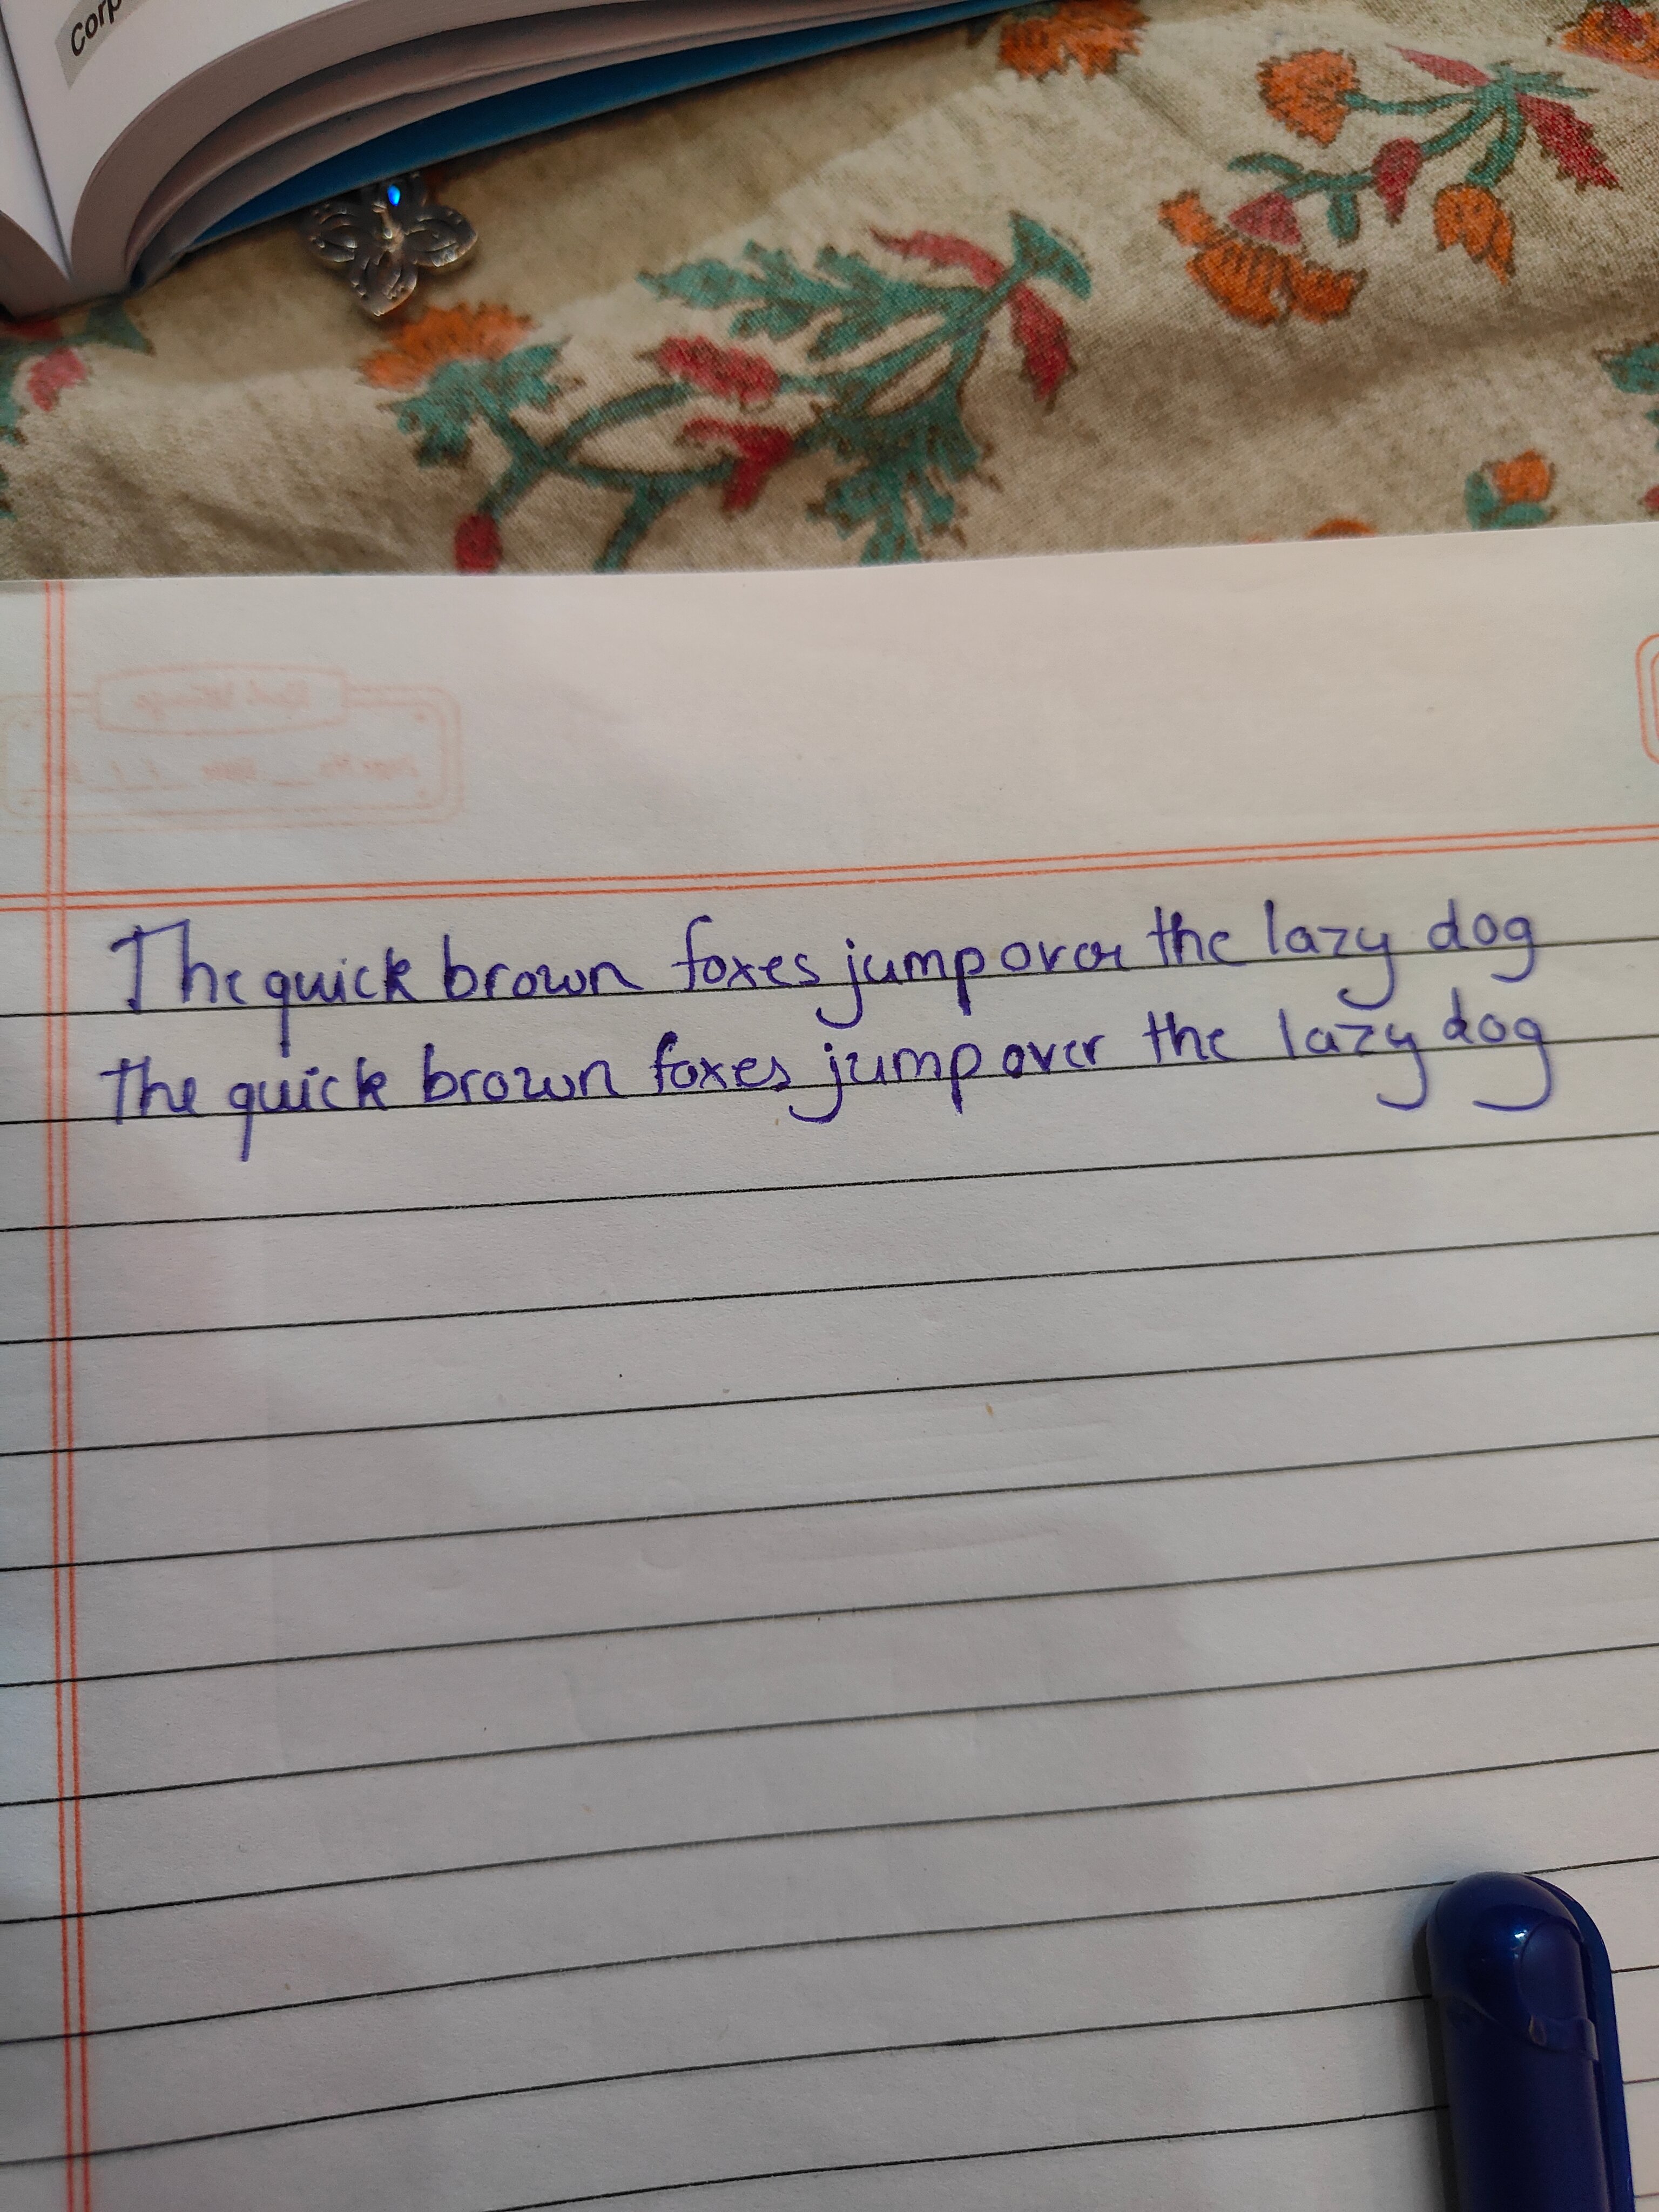 Corp
The quick brown foxes jump over the lazy dog
the quick brown foxes jump over the lazy dog